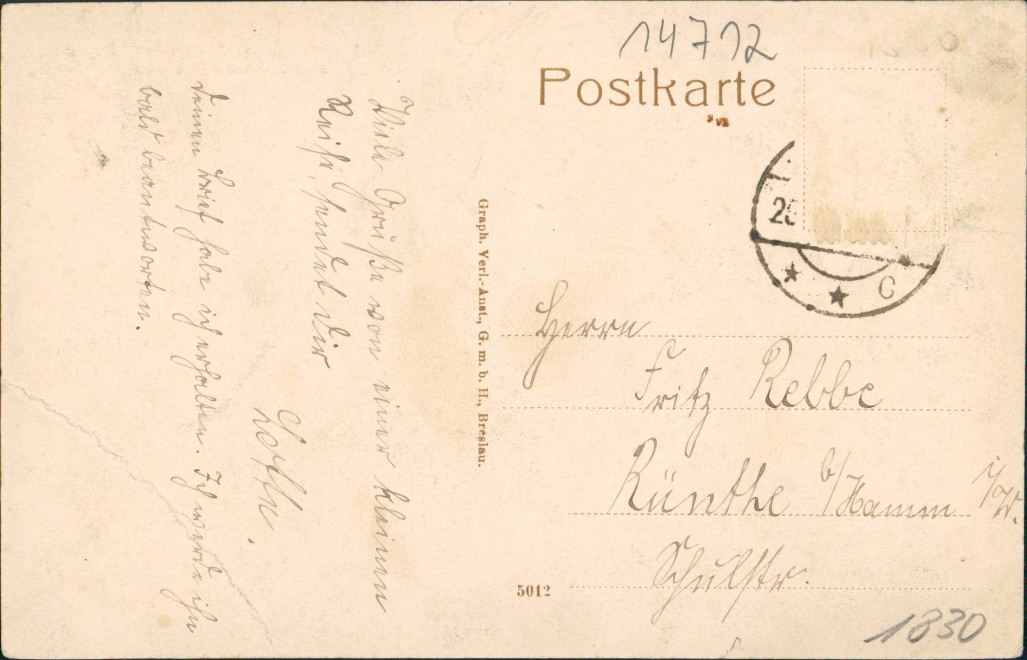 14712
Postkarte
25
C
Viele Grüße von einer kleinen
Reise, sendet Dir
Lotte.
Deinen Brief habe ich erhalten. Ich werde ihn
bald beantworten.
Graph. Verl.-Anst., G. m. b. H., Breslau.
Herrn
Fritz Rebbe
Rünthe b/Hamm i/W.
Schulstr.
5012
1830